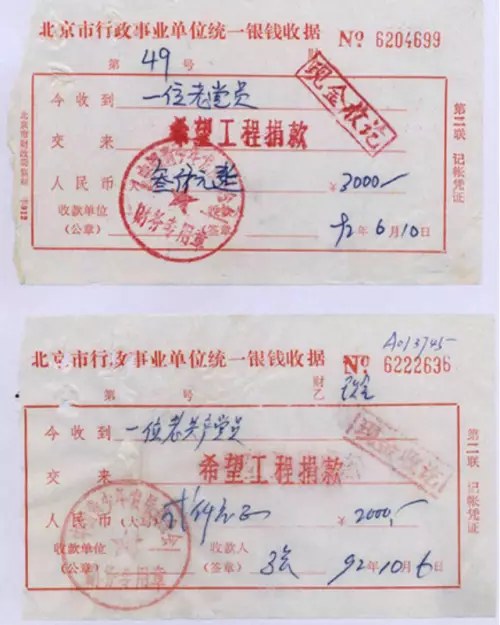 北京市行政事业单位统一银钱收据 № 6204699
第 49 号 财
今收到 一位老党员
现金收讫
交来 希望工程捐款
人民币 叁仟元整 ¥ 3000—
收款单位
(公章) (签章) 92年6月10日
财务专用章
第二联 记帐凭证
A013745
北京市行政事业单位统一银钱收据 № 6222636
第 号 财乙
今收到 一位老共产党员
现金收讫
交来 希望工程捐款
人民币(大写) 贰仟元正 ¥ 2000—
收款单位 收款人
(公章) (签章) 92年10月6日
财务专用章
第二联 记帐凭证